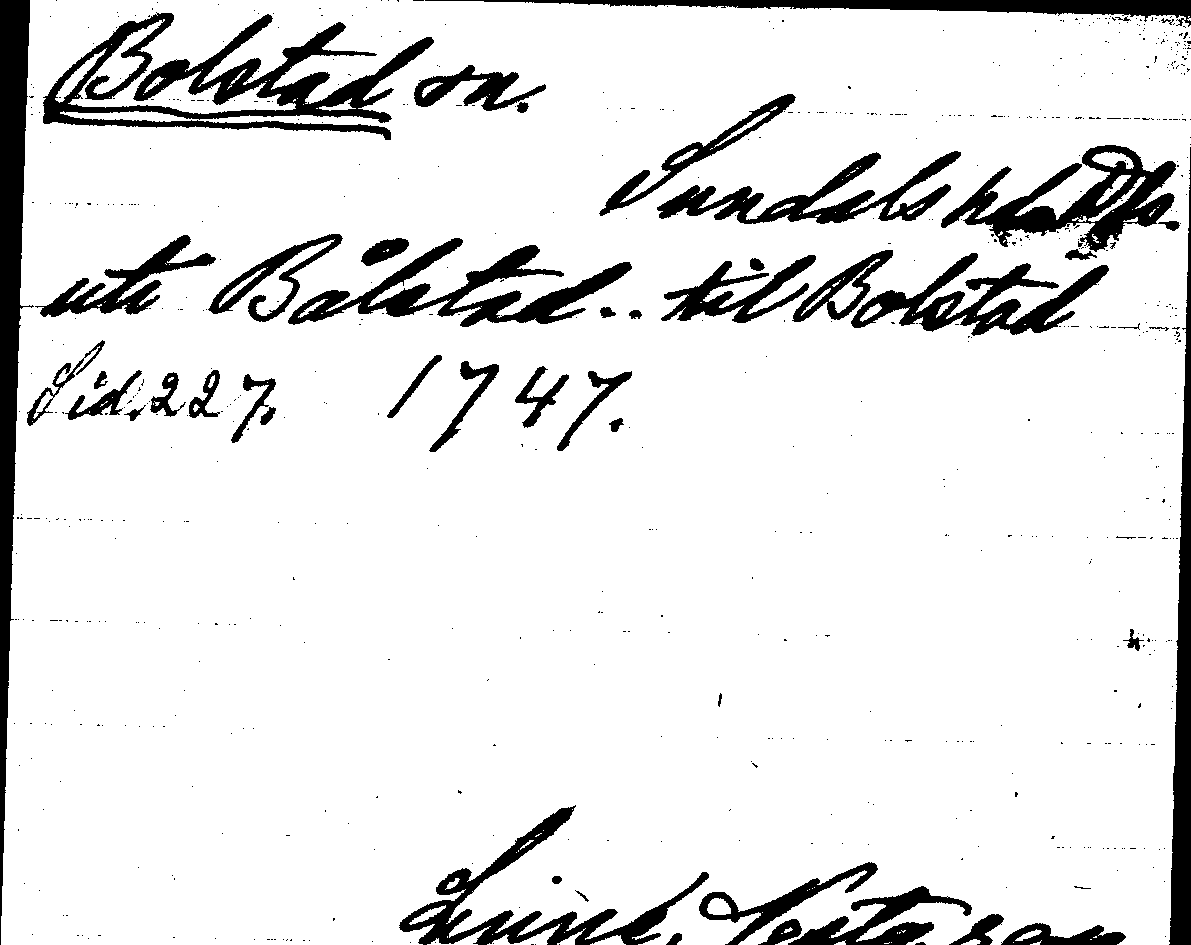 Bolstad sn.
Sundals hd Dls.
uti Bålstad.. til Bolstad
Sid. 227. 1747.
Linné, Västg. resa